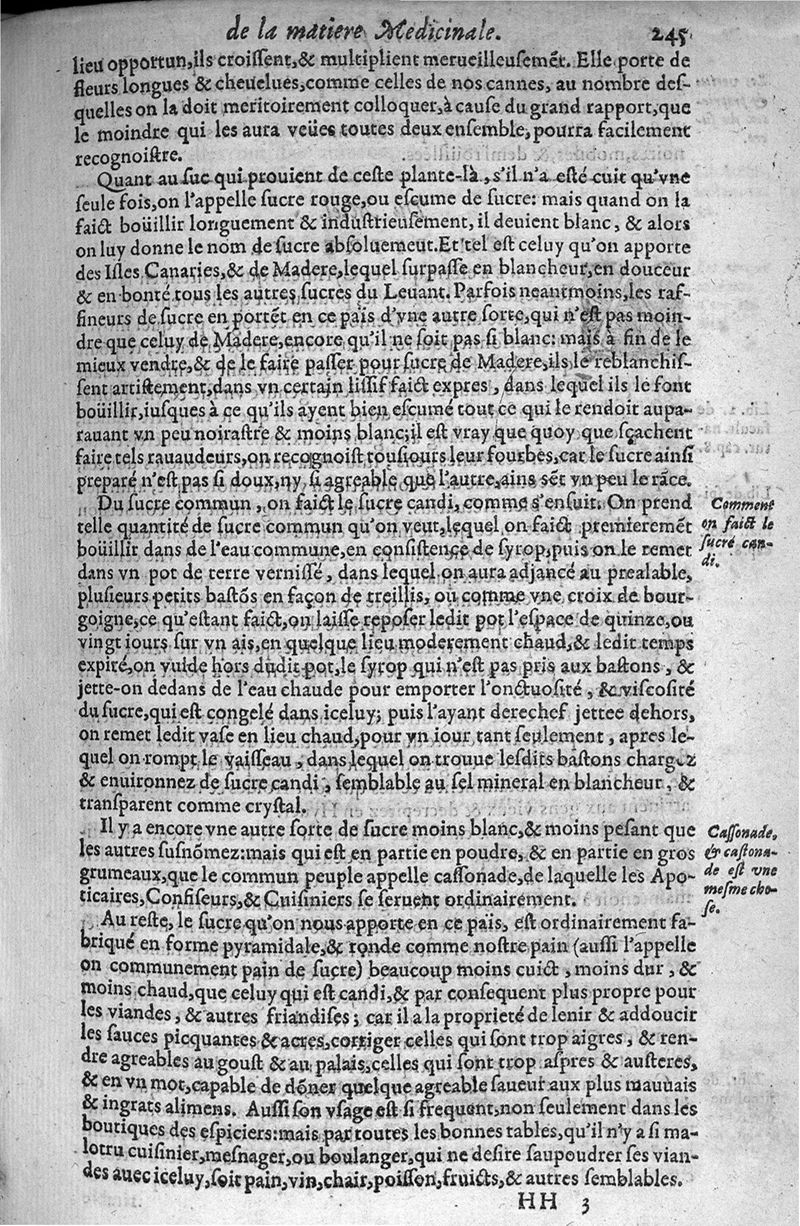 de la matiere Medicinale. 245
lieu opportun,ils croiſſent,& multiplient merueilleuſemẽt. Elle porte de
fleurs longues & cheuelues,comme celles de nos cannes, au nombre deſ-
quelles on la doit meritoirement colloquer,à cauſe du grand rapport,que
le moindre qui les aura veües toutes deux enſemble, pourra facilement
recognoiſtre.
Quant au ſuc qui prouient de ceſte plante-là, s'il n'a eſté cuit qu'vne
ſeule fois, on l'appelle ſucre rouge, ou eſcume de ſucre: mais quand on la
faict boüillir longuement & induſtrieuſement, il deuient blanc, & alors
on luy donne le nom de ſucre abſoluemeut. Et tel eſt celuy qu'on apporte
des Iſles Canaries,& de Madere,lequel ſurpaſſe en blancheur,en douceur
& en bonté tous les autres ſucres du Leuant. Parfois neantmoins,les raf-
fineurs de ſucre en portẽt en ce païs d'vne autre ſorte,qui n'eſt pas moin-
dre que celuy de Madere,encore qu'il ne ſoit pas ſi blanc: mais à fin de le
mieux vendre,& de le faire paſſer pour ſucre de Madere,ils le reblanchiſ-
ſent artiſtement,dans vn certain liſſif faict expres, dans lequel ils le font
boüillir,iuſques à ce qu'ils ayent bien eſcumé tout ce qui le rendoit aupa-
rauant vn peu noiraſtre & moins blanc; il eſt vray que quoy que ſçachent
faire tels rauaudeurs,on recognoiſt touſiours leur fourbes,car le ſucre ainſi
preparé n'eſt pas ſi doux,ny, ſi agreable que l'autre,ains ſẽt vn peu le rãce.
Du ſucre commun, on faict le ſucre candi, comme s'enſuit. On prend
telle quantité de ſucre commun qu'on veut,lequel on faict premieremẽt
boüillir dans de l'eau commune,en conſiſtence de ſyrop,puis on le remet
dans vn pot de terre verniſſé, dans lequel on aura adjancé au prealable,
pluſieurs petits baſtõs en façon de treillis, ou comme vne croix de bour-
goigne,ce qu'eſtant faict,on laiſſe repoſer ledit pot l'eſpace de quinze,ou
vingt iours ſur vn ais,en quelque lieu moderement chaud,& ledit temps
expiré,on vuide hors dudit pot,le ſyrop qui n'eſt pas pris aux baſtons, &
jette-on dedans de l'eau chaude pour emporter l'onctuoſité, & viſcoſité
du ſucre,qui eſt congelé dans iceluy; puis l'ayant derechef jettee dehors,
on remet ledit vaſe en lieu chaud,pour vn iour tant ſeulement, apres le-
quel on rompt le vaiſſeau, dans lequel on trouue leſdits baſtons chargez
& enuironnez de ſucre candi, ſemblable au ſel mineral en blancheur, &
transparent comme cryſtal.
Comment
on faict le
ſucré can-
di.
Il y a encore vne autre ſorte de ſucre moins blanc,& moins peſant que
les autres ſuſnõmez: mais qui eſt en partie en poudre, & en partie en gros
grumeaux,que le commun peuple appelle caſſonade,de laquelle les Apo-
ticaires,Confiſeurs,& Cuiſiniers ſe ſeruent ordinairement.
Caſſonade,
& caſtona-
de eſt vne
meſme cho-
ſe.
Au reſte, le ſucre qu'on nous apporte en ce païs, eſt ordinairement fa-
briqué en forme pyramidale,& ronde comme noſtre pain (auſſi l'appelle
on communement pain de ſucre) beaucoup moins cuict, moins dur, &
moins chaud,que celuy qui eſt candi,& par conſequent plus propre pour
les viandes, & autres friandiſes; car il a la proprieté de lenir & addoucir
les ſauces picquantes & acres,corriger celles qui ſont trop aigres, & ren-
dre agreables au gouſt & au palais,celles qui ſont trop aſpres & auſteres,
& en vn mot,capable de dõner quelque agreable ſaueur aux plus mauuais
& ingrats alimens. Auſſi ſon vſage eſt ſi frequent,non ſeulement dans les
boutiques des eſpiciers: mais par toutes les bonnes tables,qu'il n'y a ſi ma-
lotru cuiſinier,meſnager,ou boulanger,qui ne deſire ſaupoudrer ſes vian-
des auec iceluy,ſoit pain,vin,chair,poiſſon,fruicts,& autres ſemblables.
HH 3